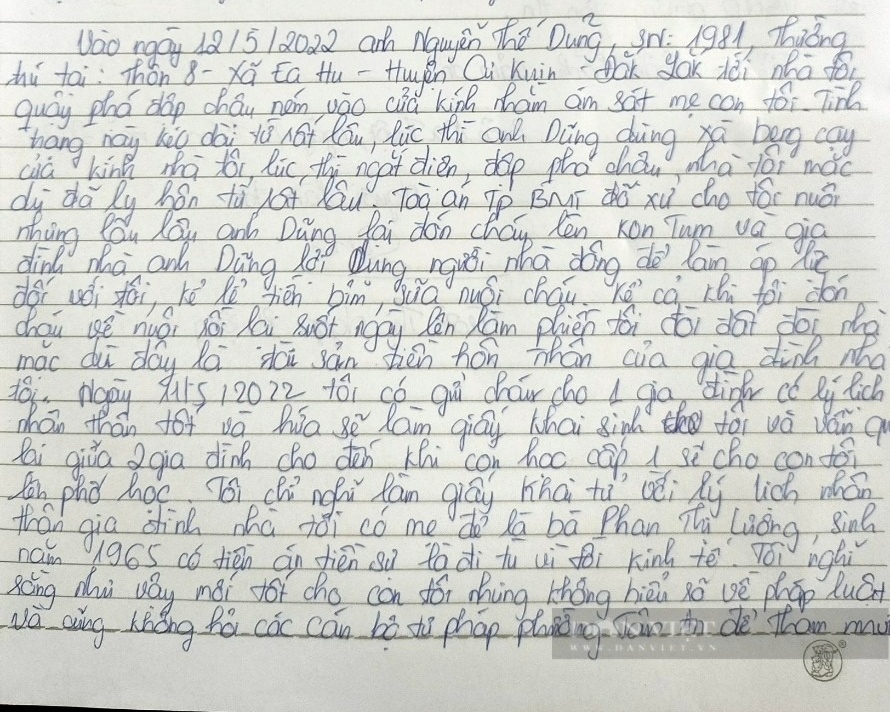 Vào ngày 12/5/2022 anh Nguyễn Thế Dũng, SN: 1981, Thường
trú tại: Thôn 8 - Xã Ea Hu - Huyện Cư Kuin - Đăk Lăk tới nhà tôi
quậy phá đập chậu ném vào cửa kính nhằm ám sát mẹ con tôi. Tình
trạng này kéo dài từ rất lâu, lúc thì anh Dũng dùng xà beng cạy
cửa kính nhà tôi, lúc thì ngắt điện, đập phá chậu, nhà tôi mặc
dù đã ly hôn từ rất lâu. Toà án Tp BMT đã xử cho tôi nuôi
nhưng lâu lâu anh Dũng lại đón cháu lên Kon Tum và gia
đình nhà anh Dũng lợi dụng người nhà đông để làm áp lực
đối với tôi, kể lể tiền bỉm, sữa nuôi cháu. Kể cả khi tôi đón
cháu về nuôi rồi lại suốt ngày lên làm phiền tôi đòi đất đòi nhà
mặc dù đây là tài sản tiền hôn nhân của gia đình nhà
tôi. Ngày 11/5/2022 tôi có gửi cháu cho 1 gia đình có lý lịch
nhân thân tốt và hứa sẽ làm giấy khai sinh cho tôi và vẫn qu
lại giữa 2 gia đình cho đến khi con học cấp 1 sẽ cho con tôi
lên phố học. Tôi chỉ nghĩ làm giấy khai tử với lý lịch nhân
thân gia đình nhà tôi có mẹ đẻ là bà Phan Thị Lương, sinh
năm 1965 có tiền án tiền sự là đi tù vì tội kinh tế. Tôi nghĩ
rằng như vậy mới tốt cho con tôi nhưng không hiểu rõ về pháp luật
và cũng không hỏi các cán bộ tư pháp phường Tân An để tham mưu
DANVIET
WWW.DANVIET.VN